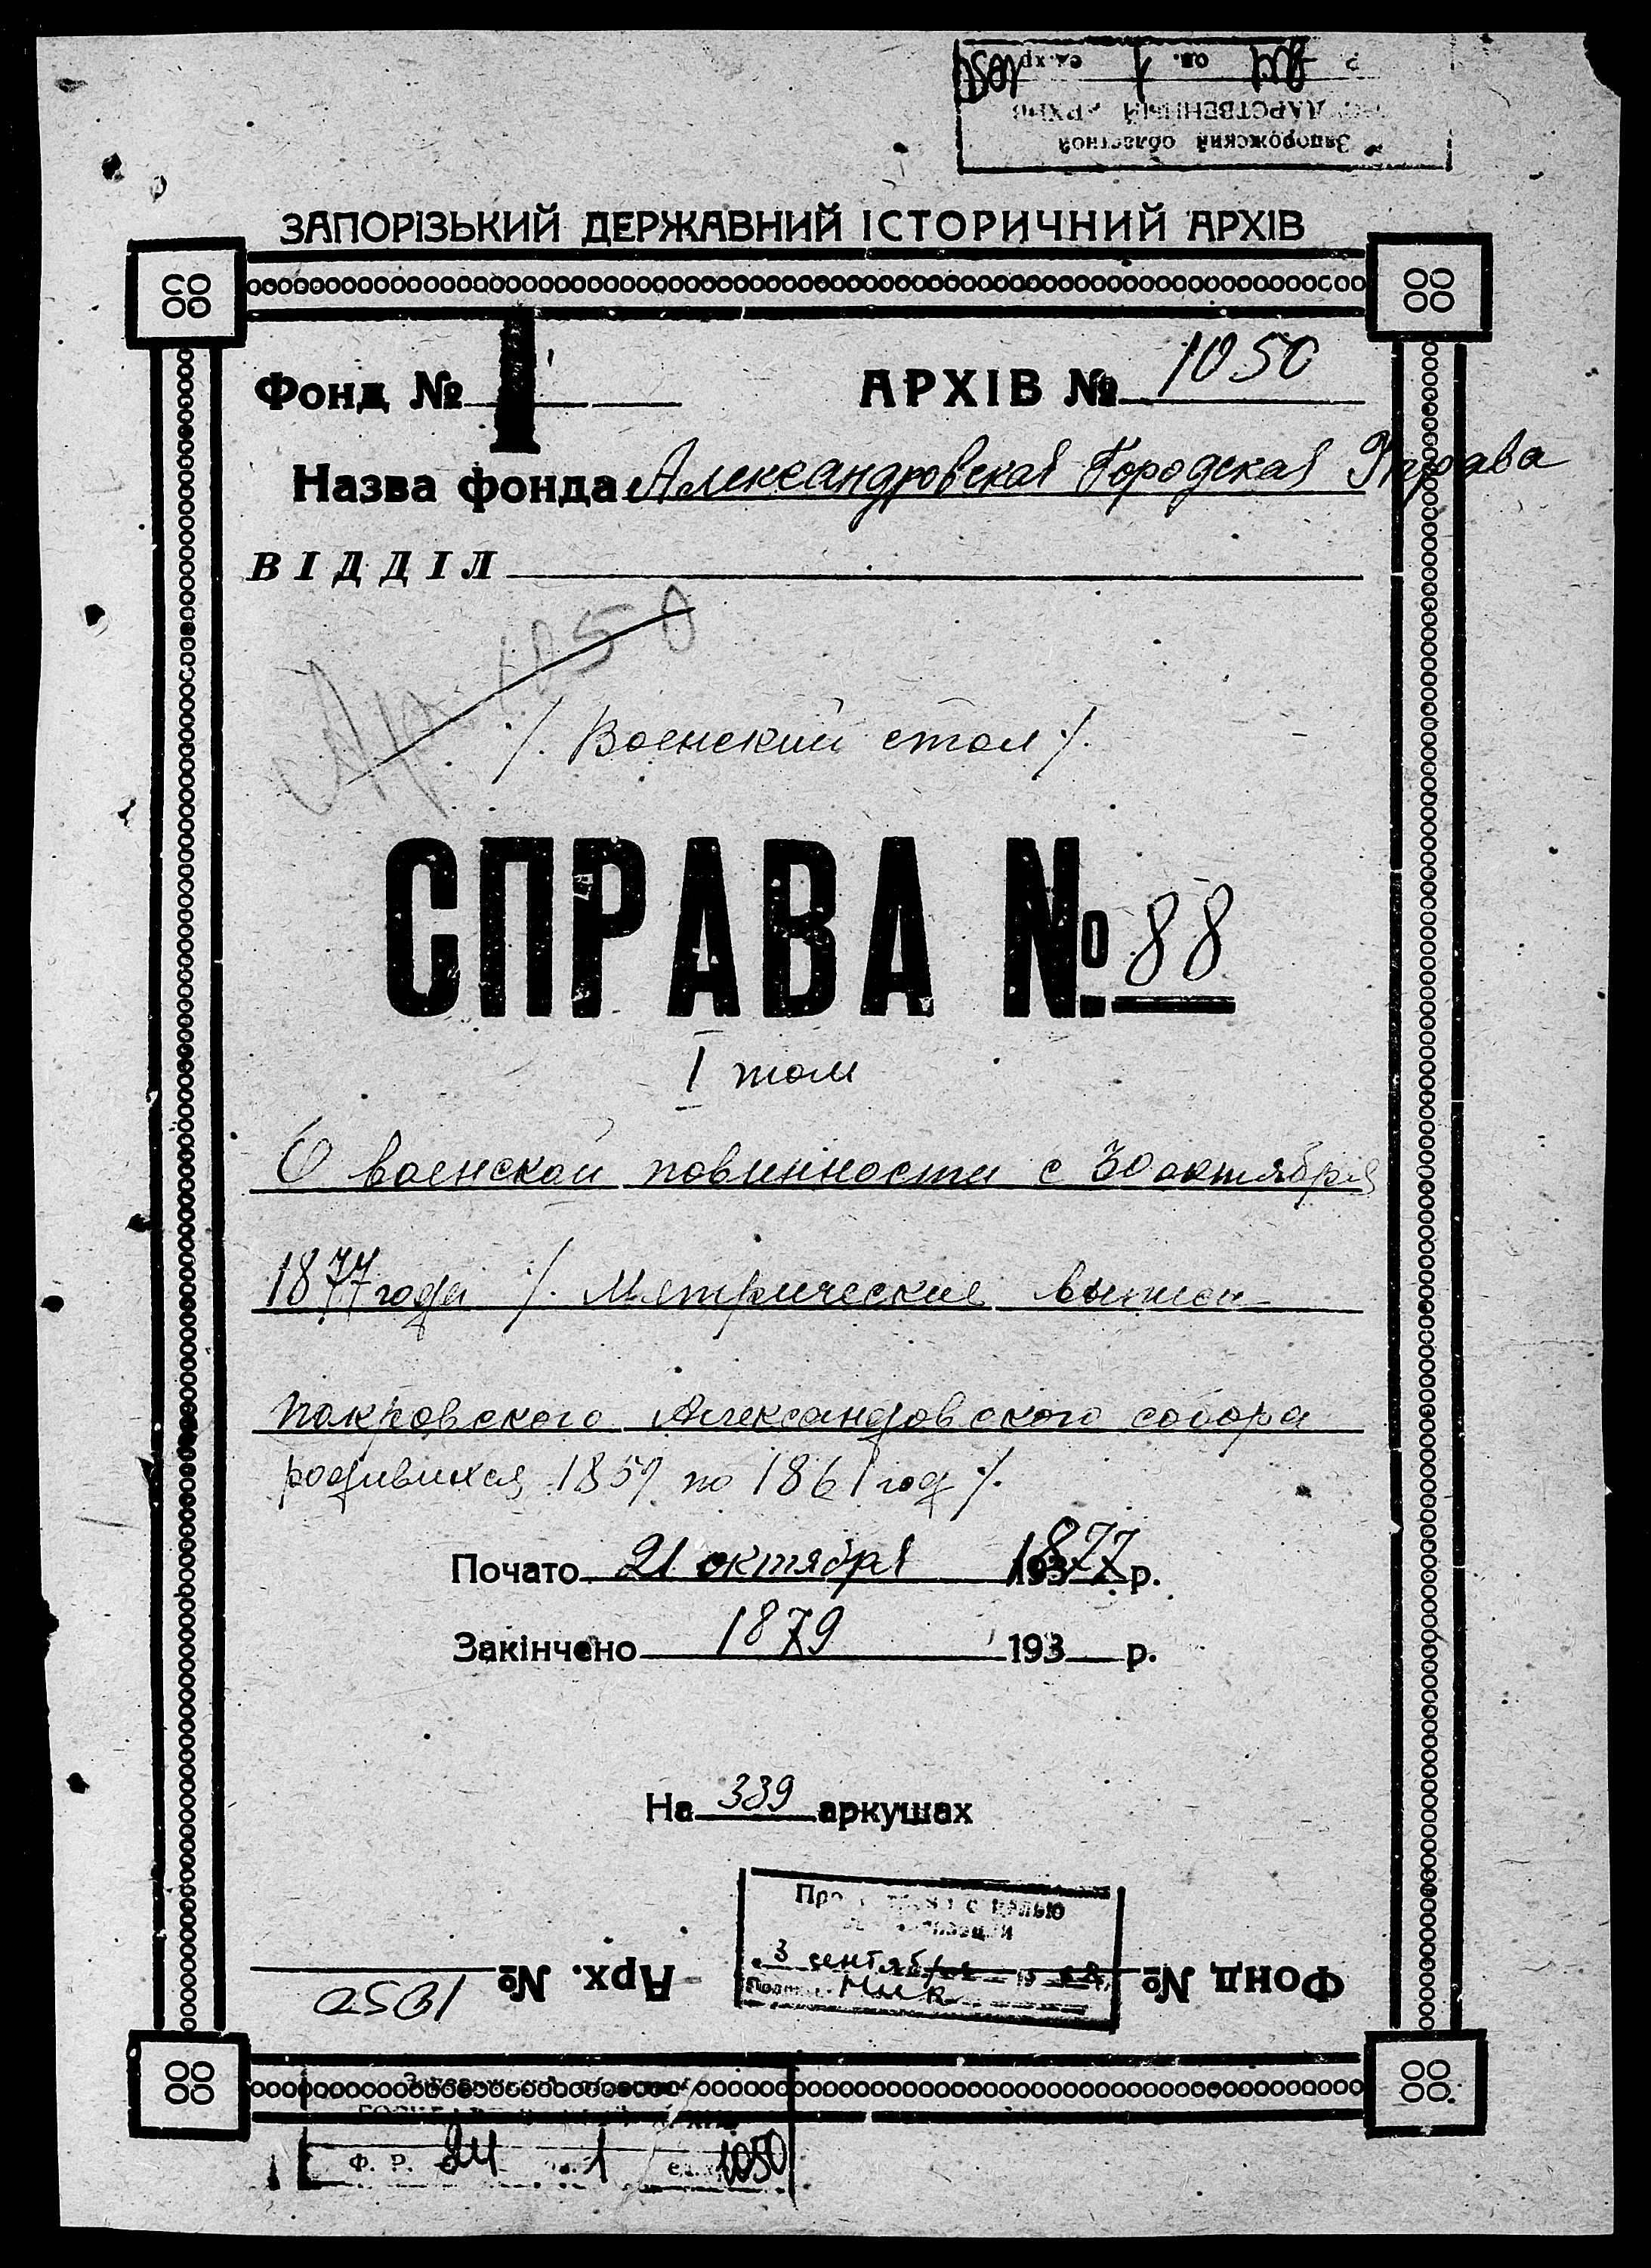 Запорожский областной
АРХИВ
ед.хр. 1050
ЗАПОРІЗЬКИЙ ДЕРЖАВНИЙ ІСТОРИЧНИЙ АРХІВ
Фонд № 1 АРХІВ № 1050
Назва фонда Александровская Городская Управа
ВІДДІЛ
Арх. 1050
/. Военский стол /.
СПРАВА №. 88
I том
О воинской повинности с 30 октября
1877 года /. Метрические выписи
Покровского Александровского собора
родившихся 1859 по 1861 год /.
Почато 21 октября 1877 р.
Закінчено 1879 193 р.
На 339 аркушах
с целью
3 сентября
Фонд № Арх. № 1050
Ф. Р. 24 1 ед.хр. 1050